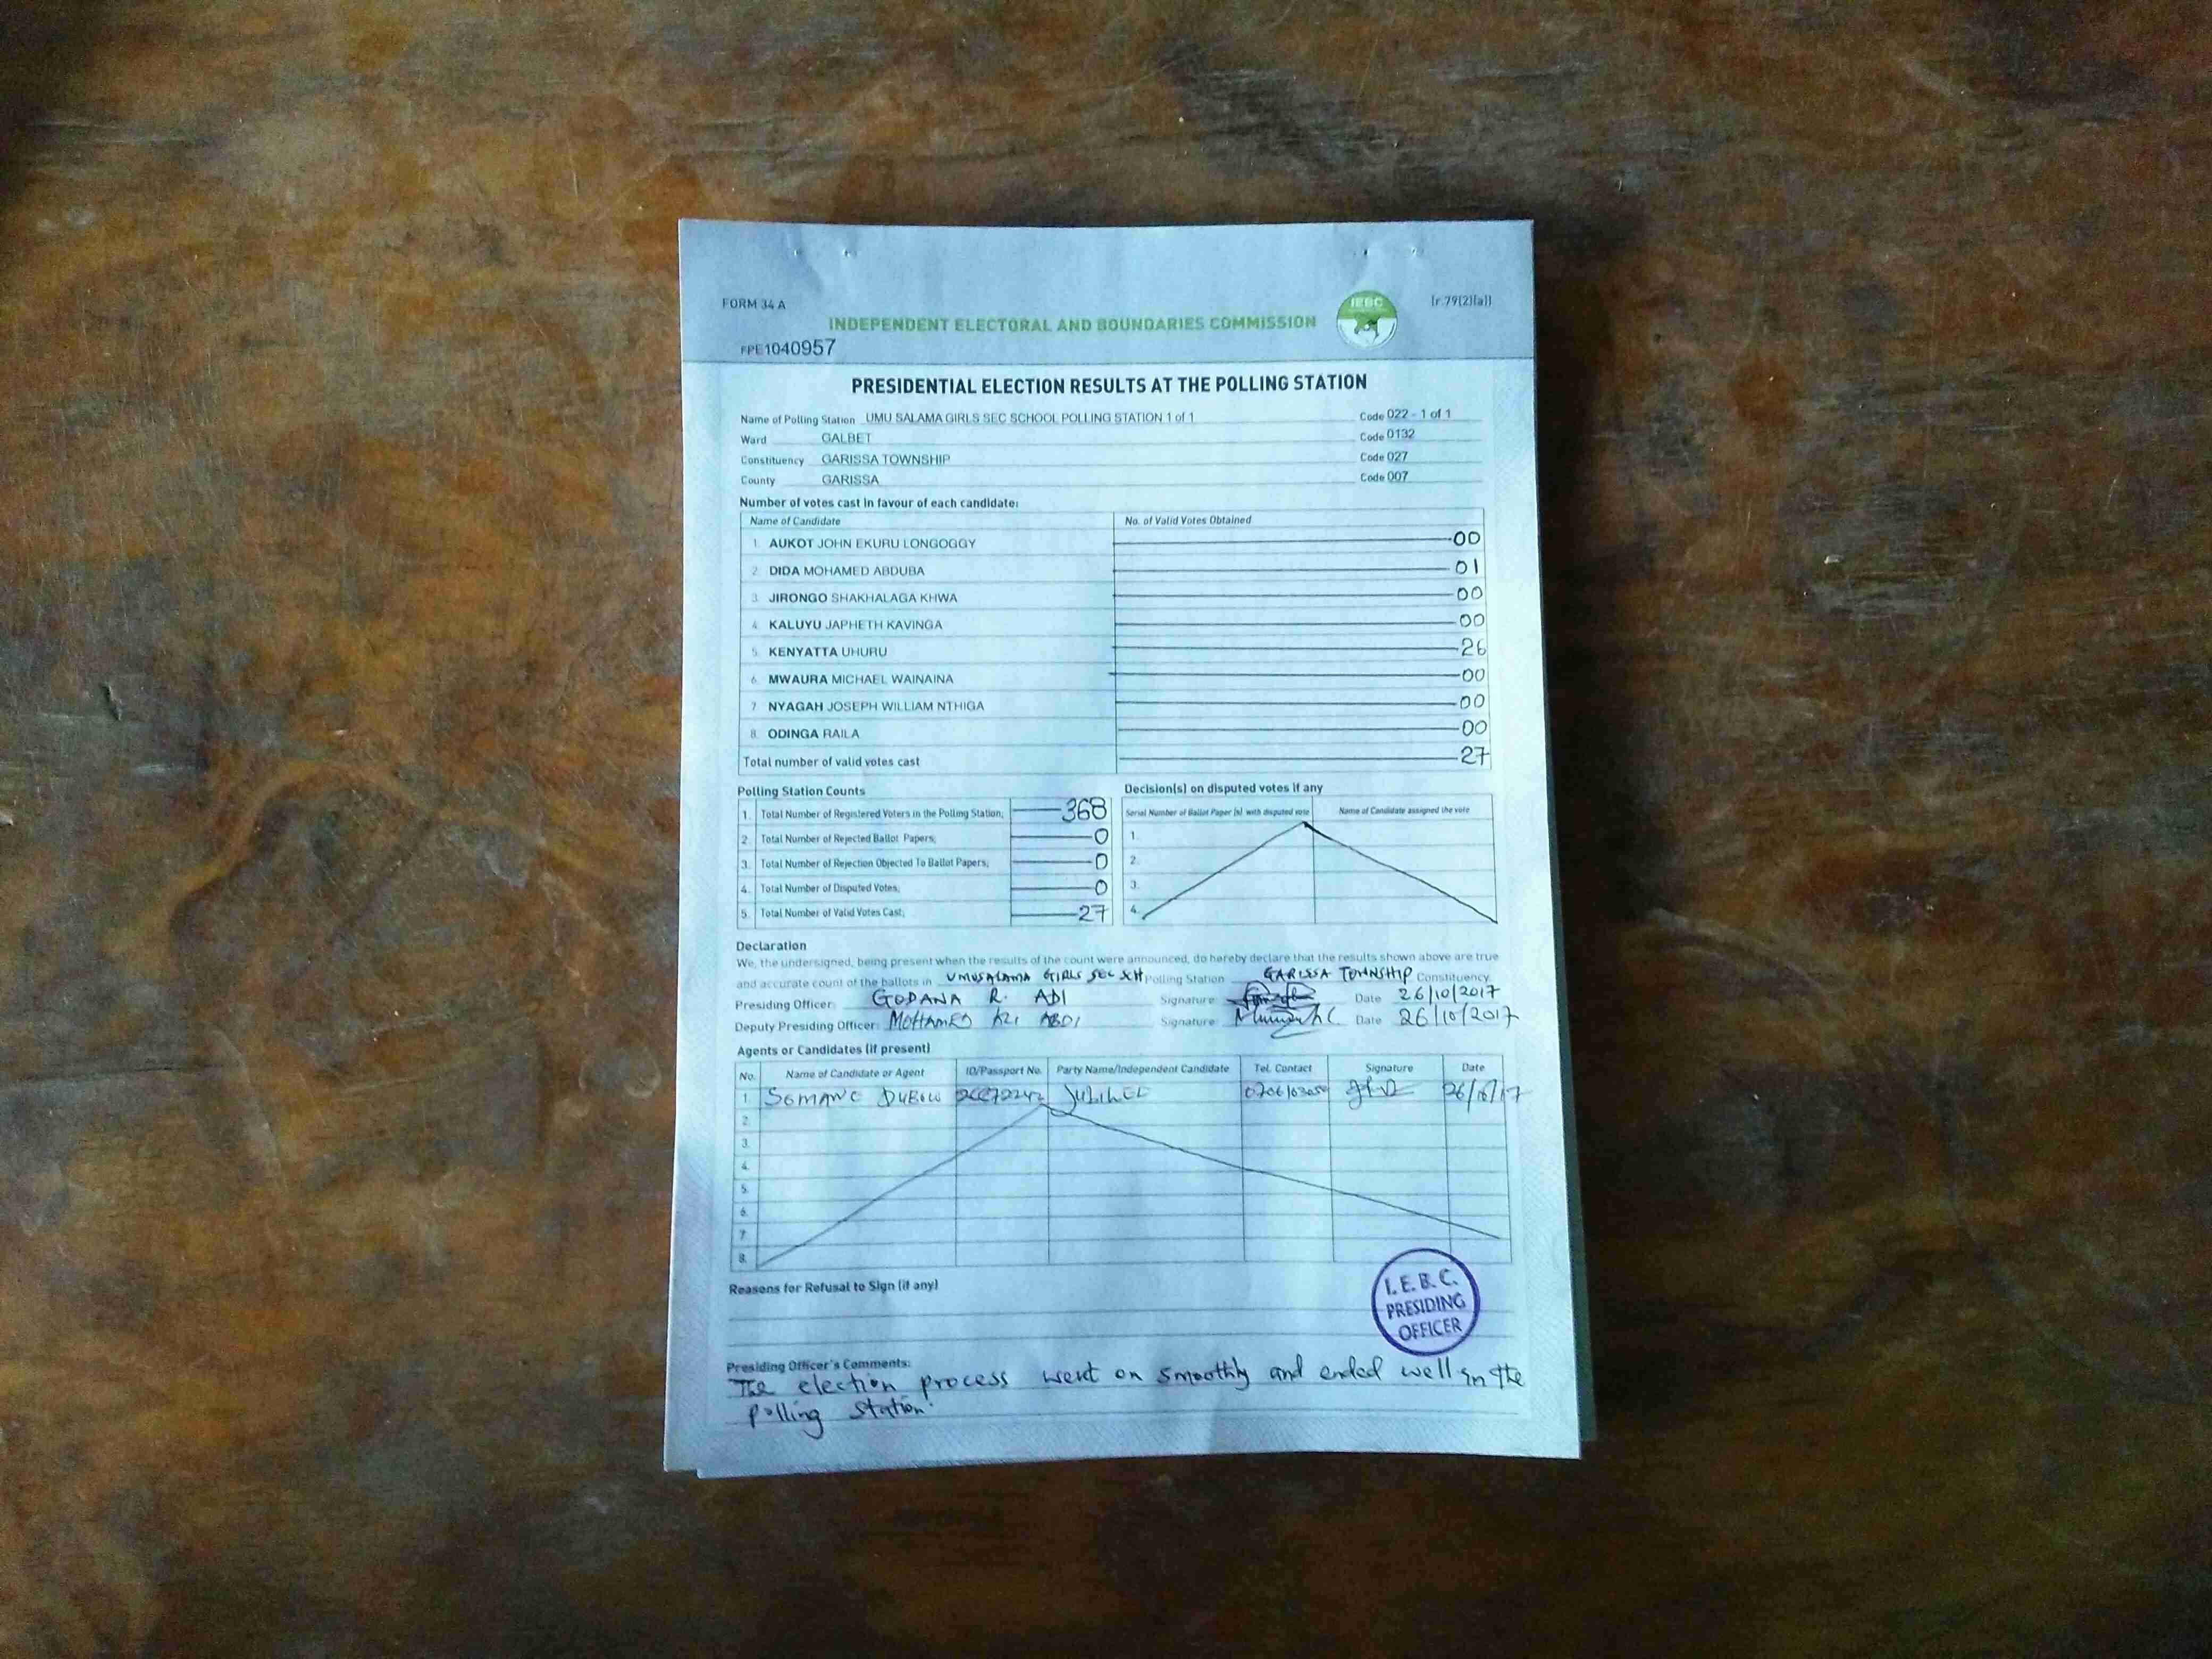 FORM 34 A
[r.79(2)(a)]
INDEPENDENT ELECTORAL AND BOUNDARIES COMMISSION
IEBC
FPE1040957
PRESIDENTIAL ELECTION RESULTS AT THE POLLING STATION
Name of Polling Station UMU SALAMA GIRLS SEC SCHOOL POLLING STATION 1 of 1 Code 022 - 1 of 1
Ward GALBET Code 0132
Constituency GARISSA TOWNSHIP Code 027
County GARISSA Code 007
Number of votes cast in favour of each candidate:
Name of Candidate No. of Valid Votes Obtained
1. AUKOT JOHN EKURU LONGOGGY 00
2. DIDA MOHAMED ABDUBA 01
3. JIRONGO SHAKHALAGA KHWA 00
4. KALUYU JAPHETH KAVINGA 00
5. KENYATTA UHURU 26
6. MWAURA MICHAEL WAINAINA 00
7. NYAGAH JOSEPH WILLIAM NTHIGA 00
8. ODINGA RAILA 00
Total number of valid votes cast 27
Polling Station Counts
1. Total Number of Registered Voters in the Polling Station; 368
2. Total Number of Rejected Ballot Papers; 0
3. Total Number of Rejection Objected To Ballot Papers; 0
4. Total Number of Disputed Votes; 0
5. Total Number of Valid Votes Cast; 27
Decision(s) on disputed votes if any
Serial Number of Ballot Paper (s) with disputed vote Name of Candidate assigned the vote
1.
2.
3.
4.
Declaration
We, the undersigned, being present when the results of the count were announced, do hereby declare that the results shown above are true
and accurate count of the ballots in UMUSALAMA GIRLS SEC SCH Polling Station GARISSA TOWNSHIP Constituency
Presiding Officer: GODANA R. ADI Signature: Date 26/10/2017
Deputy Presiding Officer: MOHAMED ABDI Signature: Date 26/10/2017
Agents or Candidates (if present)
No. Name of Candidate or Agent ID/Passport No. Party Name/Independent Candidate Tel. Contact Signature Date
1 DUBOW JUBILEE 26/10/17
2.
3.
4.
5.
6.
7.
8.
Reasons for Refusal to Sign (if any)
I.E.B.C.
PRESIDING
OFFICER
Presiding Officer's Comments:
The election process went on smoothly and ended well in the
polling station.